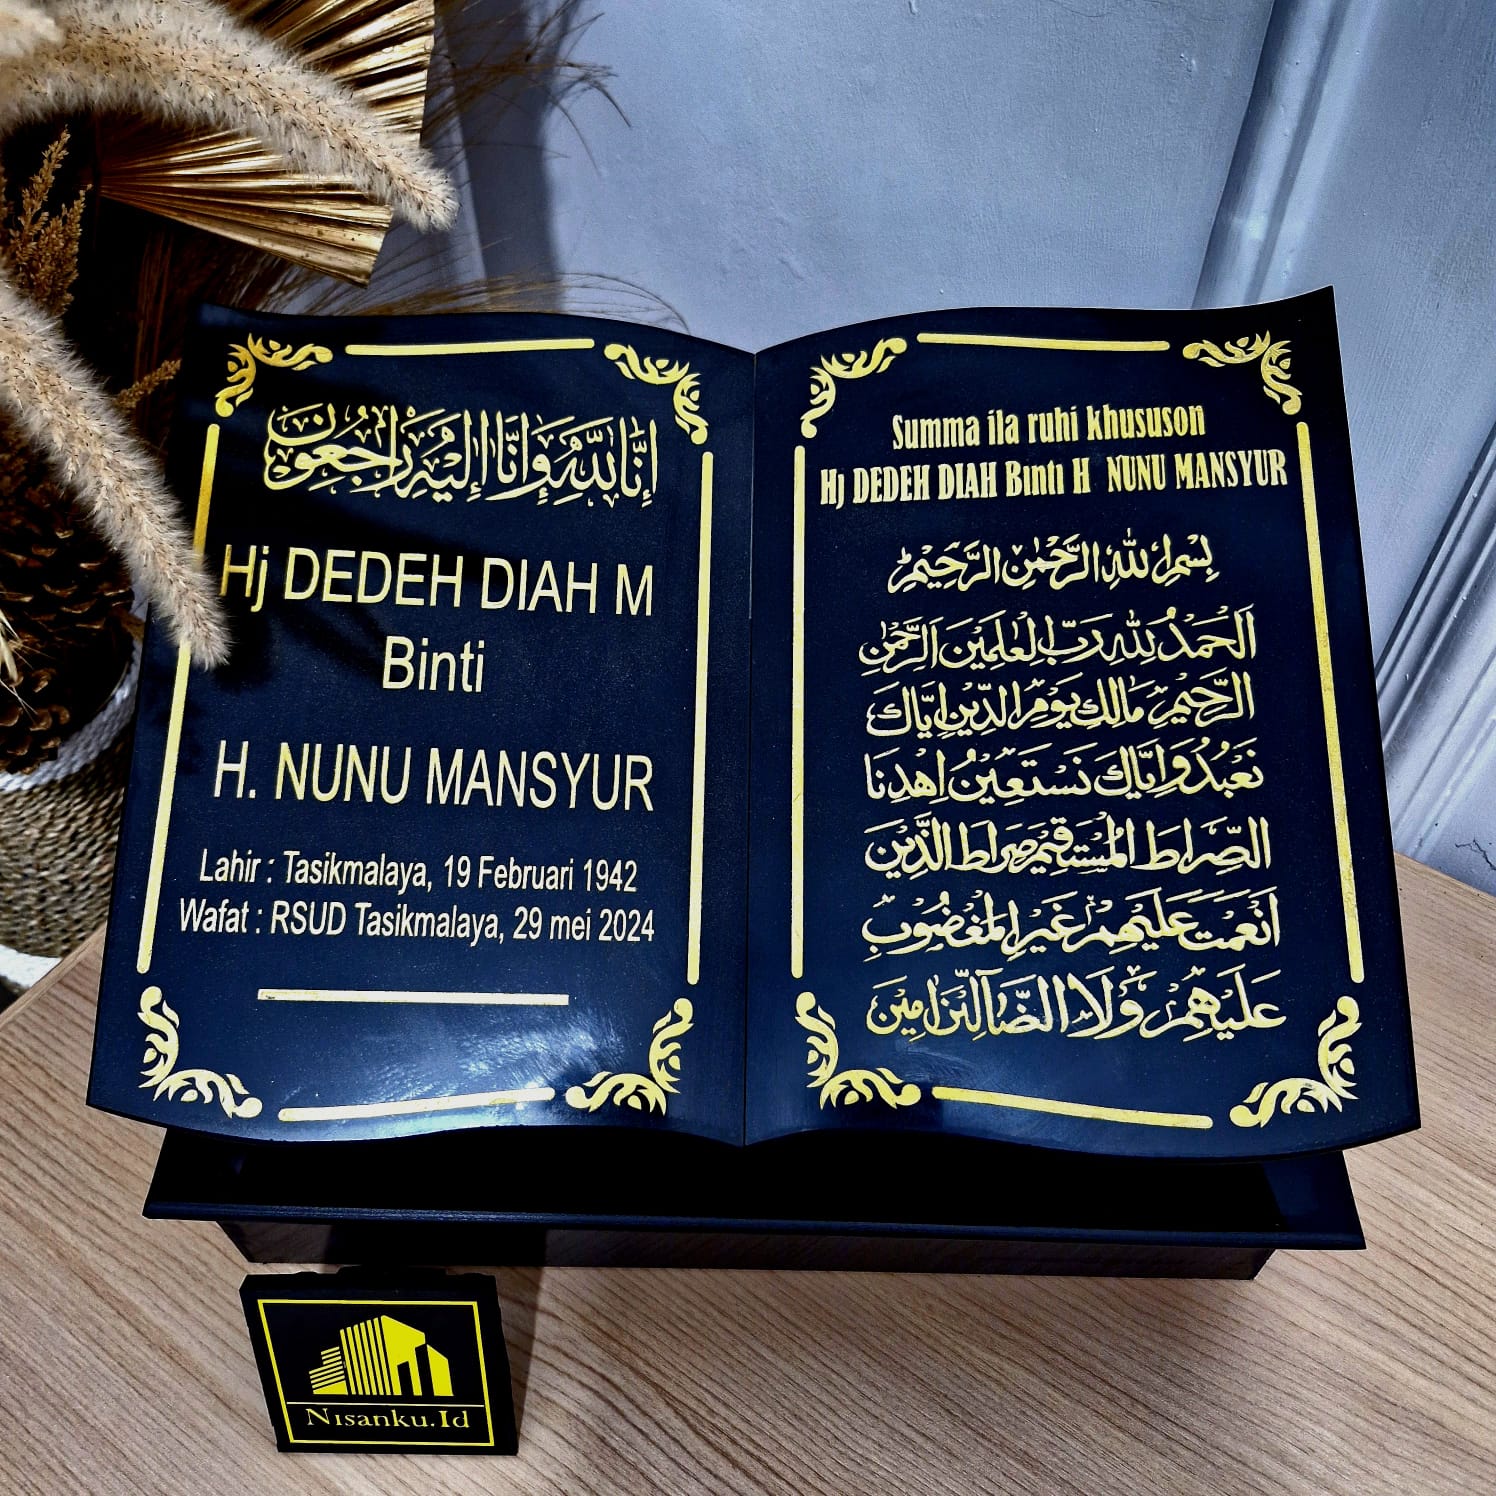 إنا لله وإنا إليه راجعون
Hj DEDEH DIAH M
Binti
H. NUNU MANSYUR
Lahir : Tasikmalaya, 19 Februari 1942
Wafat : RSUD Tasikmalaya, 29 mei 2024
Summa ila ruhi khususon
Hj DEDEH DIAH Binti H NUNU MANSYUR
بسم الله الرحمن الرحيم
الحمد لله رب العلمين الرحمن
الرحيم مالك يوم الدين اياك
نعبد واياك نستعين اهدنا
الصراط المستقيم صراط الذين
انعمت عليهم غير المغضوب
عليهم ولا الضالين امين
Nisanku.Id